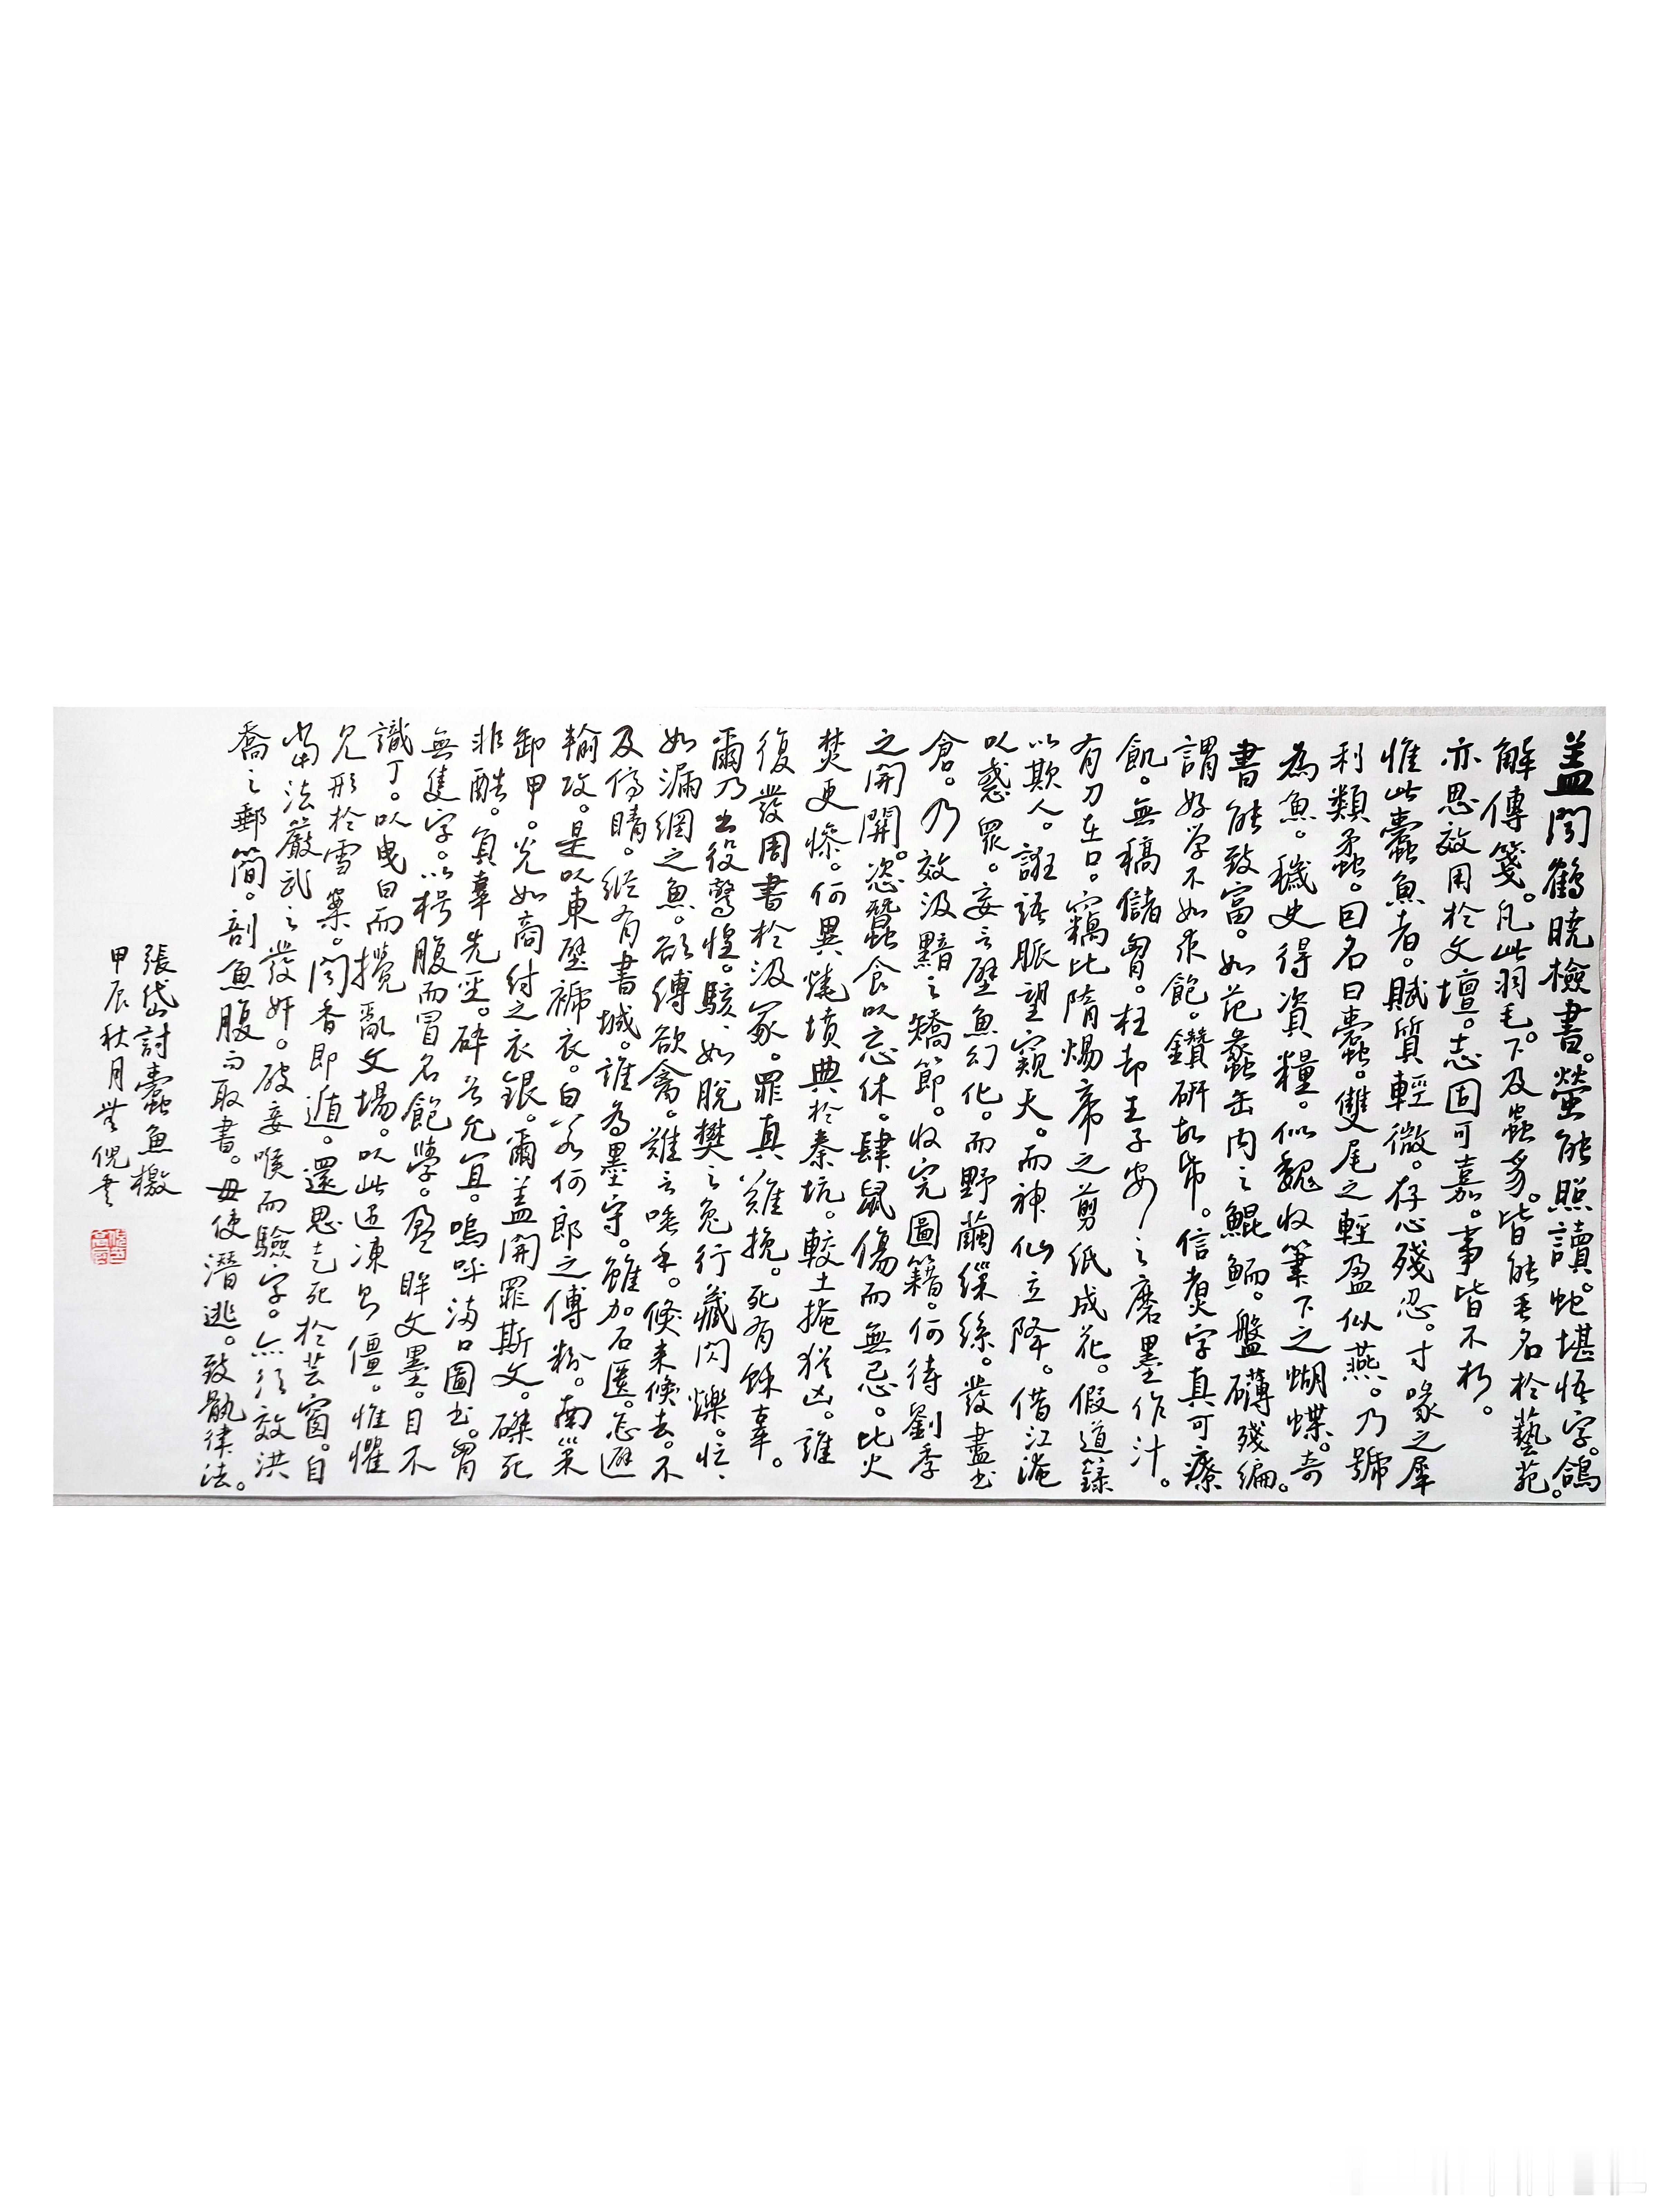 盖聞鶴曉檢書。螢能照讀。蛇堪悟字。鴿
解傳箋。凡此羽毛。下及蟲豸。皆能垂名於藝苑。
亦思效用於文壇。志固可嘉。事皆不朽。
惟此蠹魚者。賦質輕微。存心殘忍。寸喙之犀
利類蟊。曰名曰蠹。雙尾之輕盈似燕。乃號
為魚。穢史得資糧。似魏收筆下之蝴蝶。奇
書能致富。如范蠡缶内之鯤鮞。盤礴殘編。
謂好学不如求飽。鑽研故帋。信煑字真可療
飢。無稿儲胷。枉却王子安之磨墨作汁。
有刀在口。竊比隋煬帝之剪紙成花。假道籙
以欺人。謊語脈望窺天。而神仙立降。借江淹
以惑眾。妄言壁魚幻化。而野繭繅絲。發盡书
倉。乃效汲黯之矯節。收完圖籍。何待劉季
之開關。恣蠶食以忘休。肆鼠傷而無忌。比火
焚更慘。何異燒墳典於秦坑。較土掩猶凶。誰
復發周書於汲冢。罪真難挽。死有餘辜。
爾乃出役驚惶。駭如脫樊之兔行藏閃爍。忙
如漏網之魚。欲縛欲禽。難言唾手。倏来倏去。不
及停睛。縱有書城。誰為墨守。雖加石匱。怎避
輸攻。是以東壁褫衣。白若何郎之傅粉。南巢
卸甲。光如商紂之衣銀。爾盖開罪斯文。磔死
非酷。負辜先聖。碎首允宜。嗚呼滿口圖书。胷
無隻字。以枵腹而冒名飽學。盈眸文墨。目不
識丁。以曳白而攪亂文場。以此近凍即僵。惟懼
見形於雪案。聞香即遁。還思乞死於芸窗。自
當法嚴武之發奸。破妾喉而驗字。亦須效洪
喬之郵簡。剖魚腹而取書。毋使潛逃。致骫律法。
張岱討蠹魚檄
甲辰秋月 倪書